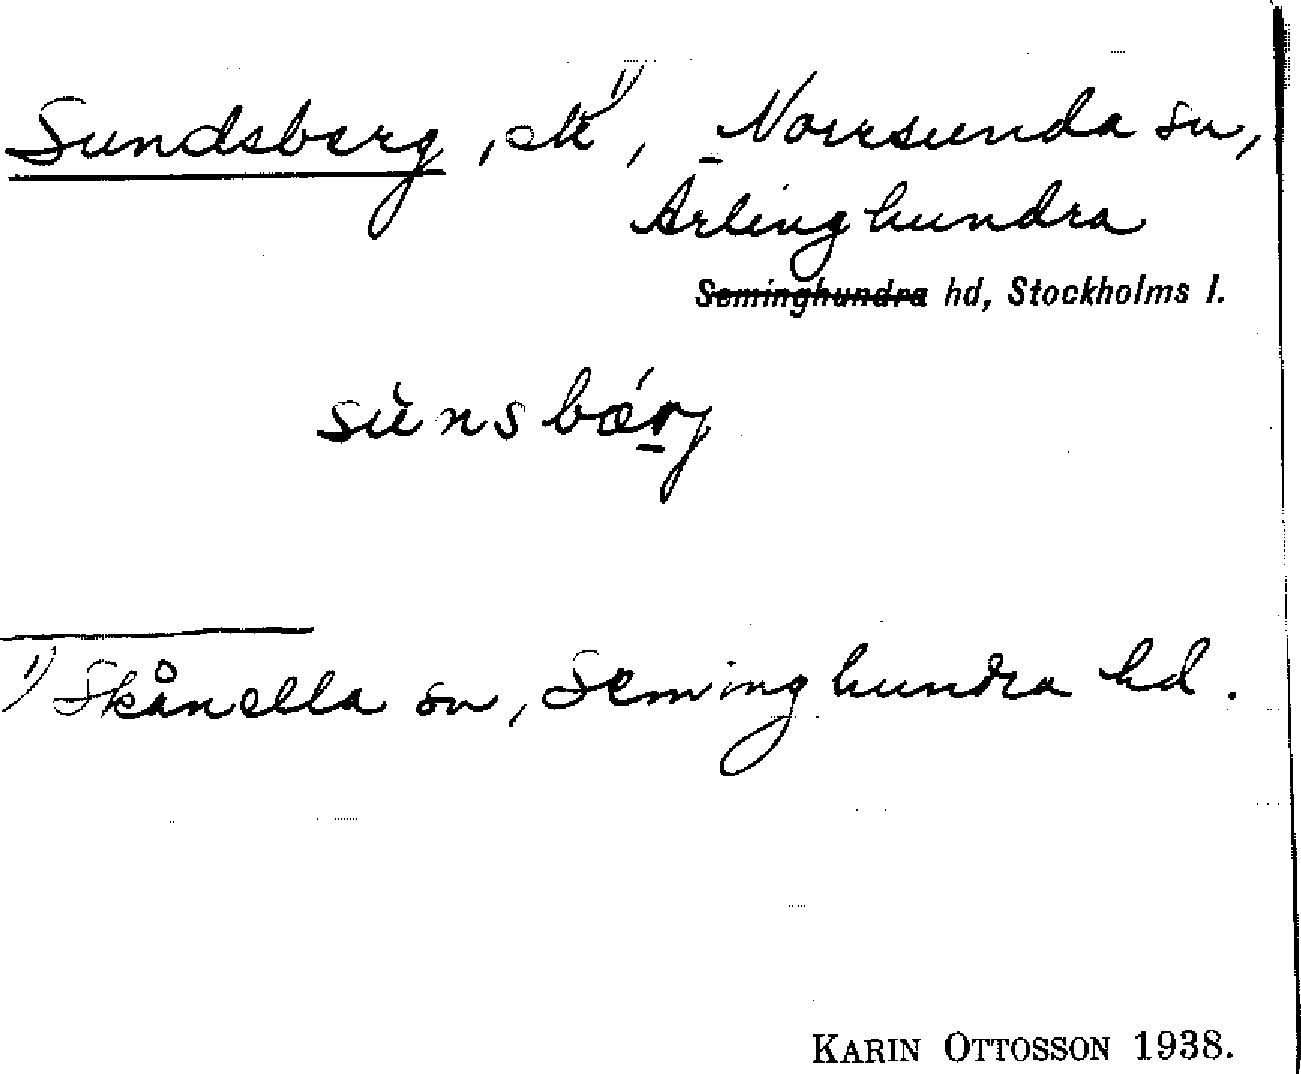 Sundsberg, elt ¹), Norrsunda sn,
Ärlinghundra
Seminghundra hd, Stockholms l.
sùnsbǽrj
¹) Skånella sn, Seminghundra hd.
KARIN OTTOSSON 1938.